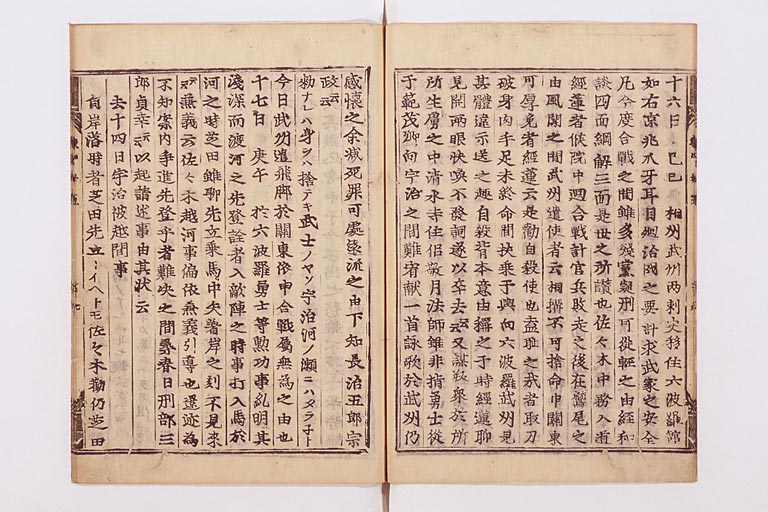 十六日 己巳 相州武州両刺史移住六波羅舘
如右京兆爪牙耳目廻治國之要計求武家之安全
凡今度合戰之間雖多殘黨疑刑可從輕之由経和
談四面網解三面是世之所讃也佐々木中務入道
経蓮者候院中廻合戰計官兵敗走之後在鷲尾之
由風聞之間武州遣使者云相搆不可捨命申關東
可厚免者經蓮云是勸自殺使也盍耻之哉者取刀
破身肉手足未終命間扶乗于輿向六波羅武州見
其體違示送之趣自殺背本意由稱之于時経蓮聊
見開兩眼快咲不發詞遂以卒去云々又謀叛衆於所
所生虜之中清水寺住侶敬月法師雖非指勇士從
于範茂卿向宇治之間難宥献一首詠歌於武州仍
感懷之余减死罪可處遠流之由下知長沼五郎宗
政云々
勅ナレハ身ヲハ捨テキ武士ノヤソ宇治河ノ瀬ニハタヽネト
今日武州遣飛脚於關東依申合戰属無為之由也
十七日 庚午 於六波羅勇士等勲功事糺明其
淺深而渡河之先登詮者入敵陣之時事打入馬於
河之時芝田雖聊先立乗馬中矢着岸之刻不見來
云々兼義云々佐々木越河事偏依兼義引導也還迹為
不知案内争進先登乎者難决之間尋春日刑部三
郎貞幸云々以起請述事由其状云
去十四日宇治被越間事
自岸落時者芝田先立トイヘトモ佐々木勸仍芝田